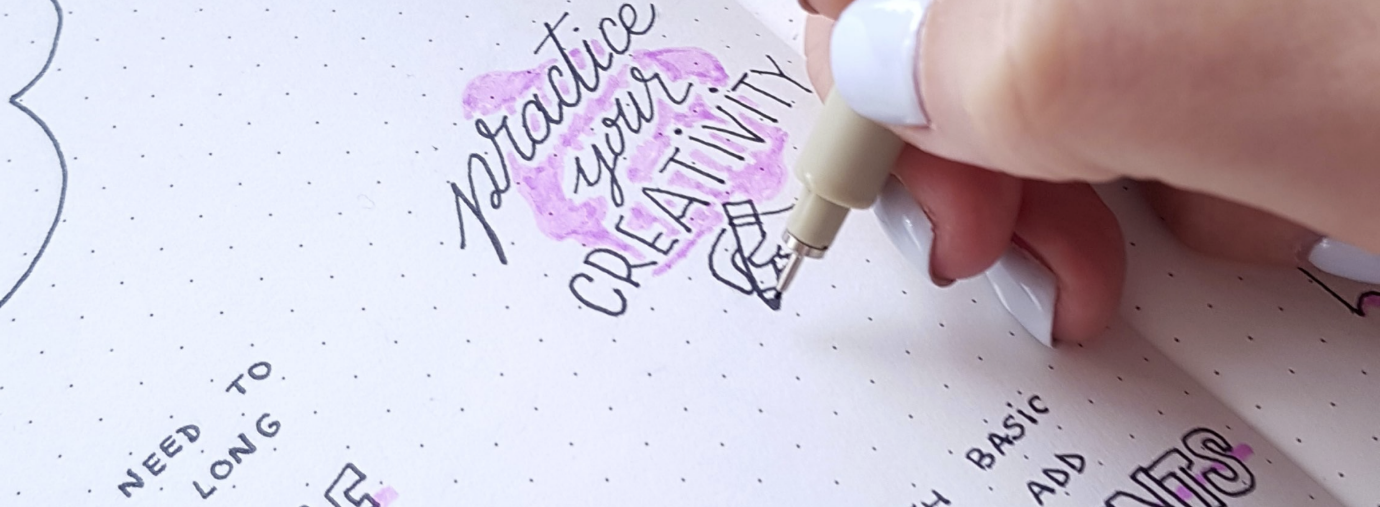 practice
your
CREATIVITY
NEED TO
LONG
BASIC
ADD